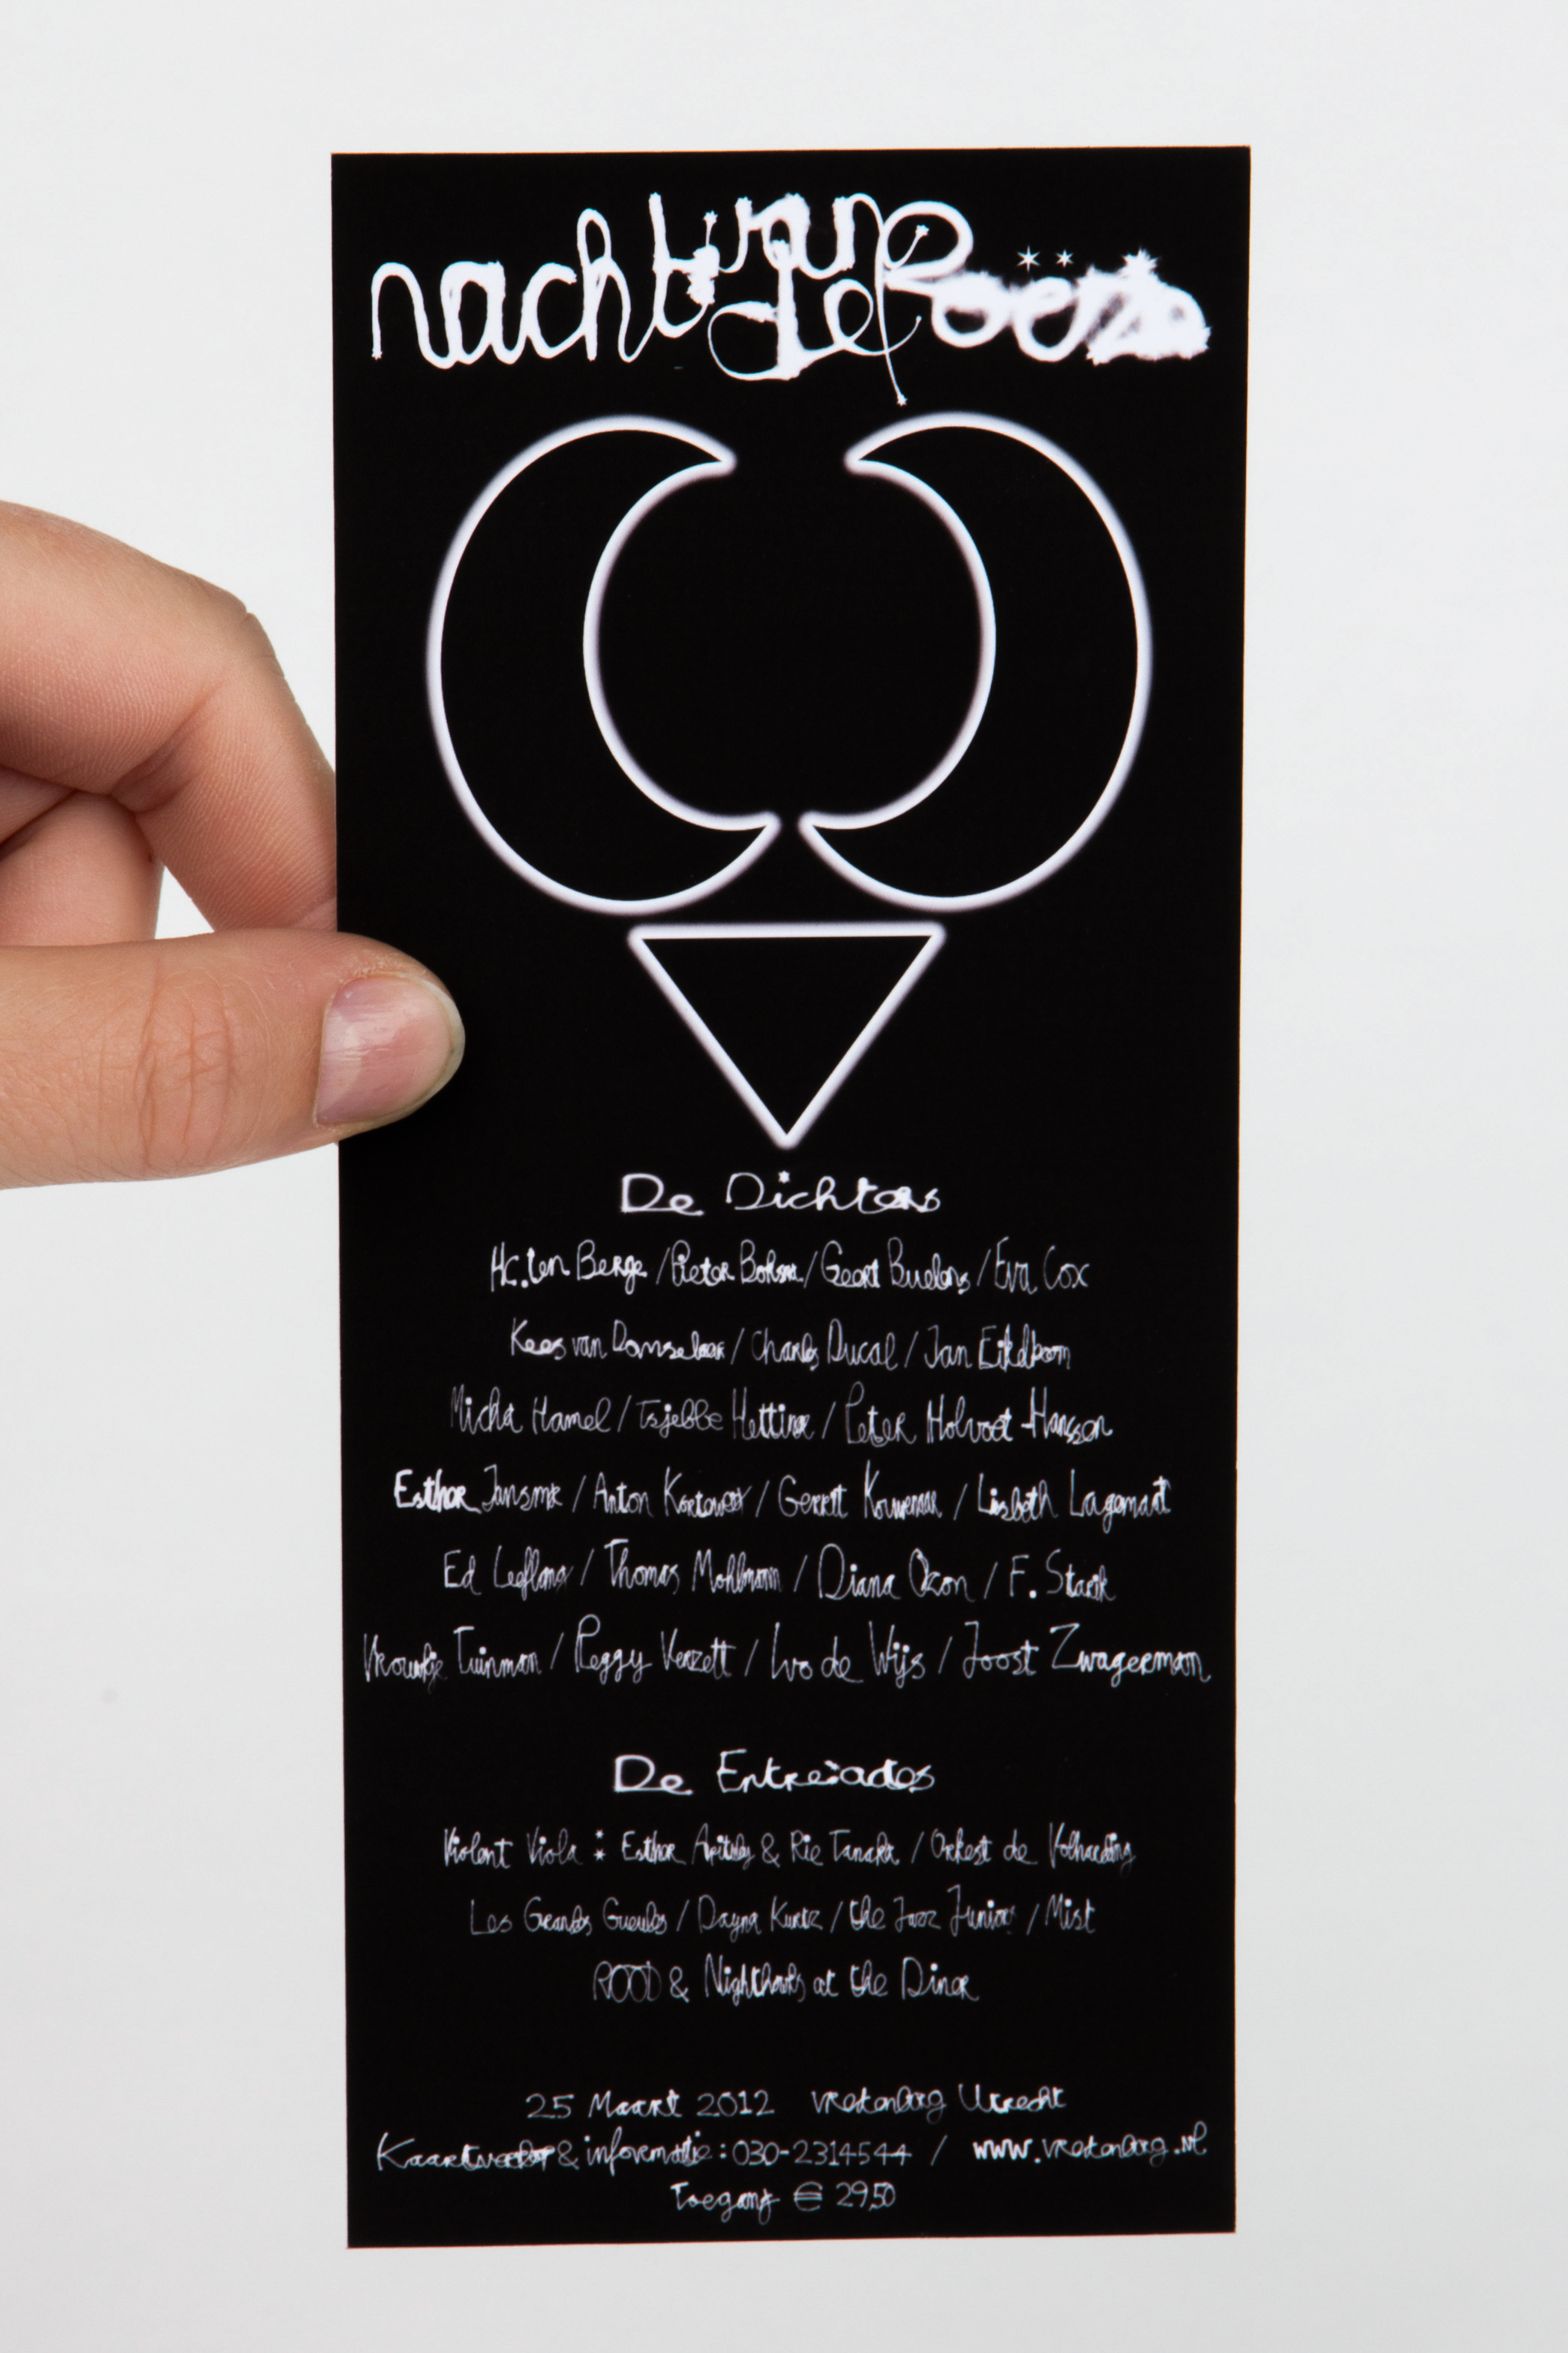 nacht van de Poëzie
De Dichters
H.C. ten Berge / Pieter Boskma / Geert Buelens / Eva Cox
Kees van Domselaar / Charles Ducal / Jan Eijkelboom
Micha Hamel / Tsjebbe Hettinga / Peter Holvoet-Hanssen
Esther Jansma / Anton Korteweg / Gerrit Kouwenaar / Liesbeth Lagemaat
Ed Leeflang / Thomas Möhlmann / Diana Ozon / F. Starik
Vrouwkje Tuinman / Peggy Verzett / Ivo de Wijs / Joost Zwagerman
De Entreactes
Violent Viola : Esther Apituley & Rie Tanaka / Orkest de Volharding
Les Grandes Gueules / Dayna Kurtz / the Jazz Juniors / Mist
ROOD & Nighthawks at the Diner
25 Maart 2012 Vredenburg Utrecht
Kaartverkoop & informatie : 030-2314544 / www.vredenburg.nl
Toegang € 29,50